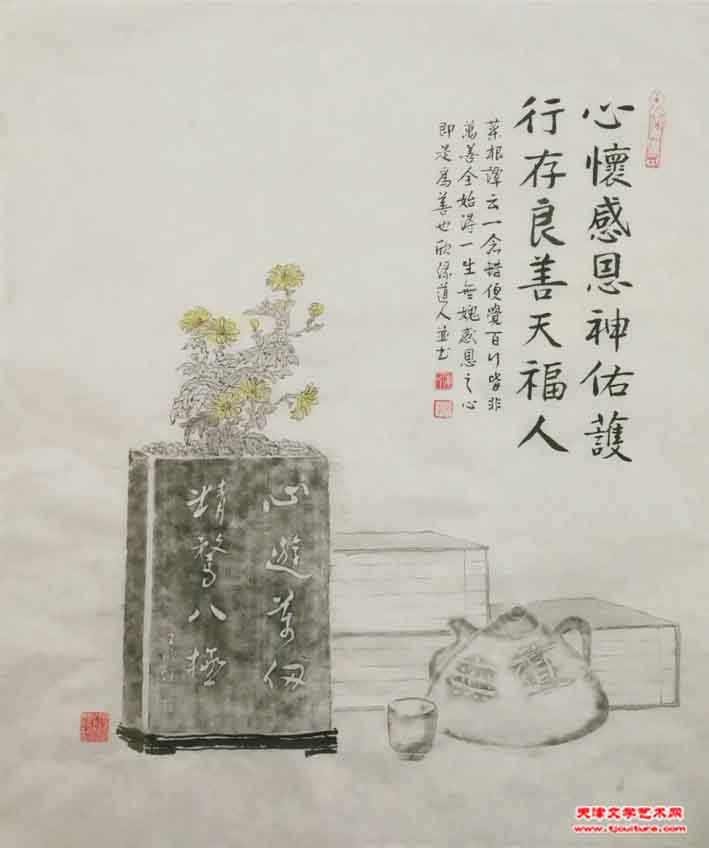 心懷感恩神佑護
行存良善天福人
菜根譚云一念錯便覺百行皆非
萬善全始得一生無媿感恩之心
即是為善也欣深道人並書
心遊萬仞
精騖八極
天津文学艺术网
www.tjculture.com